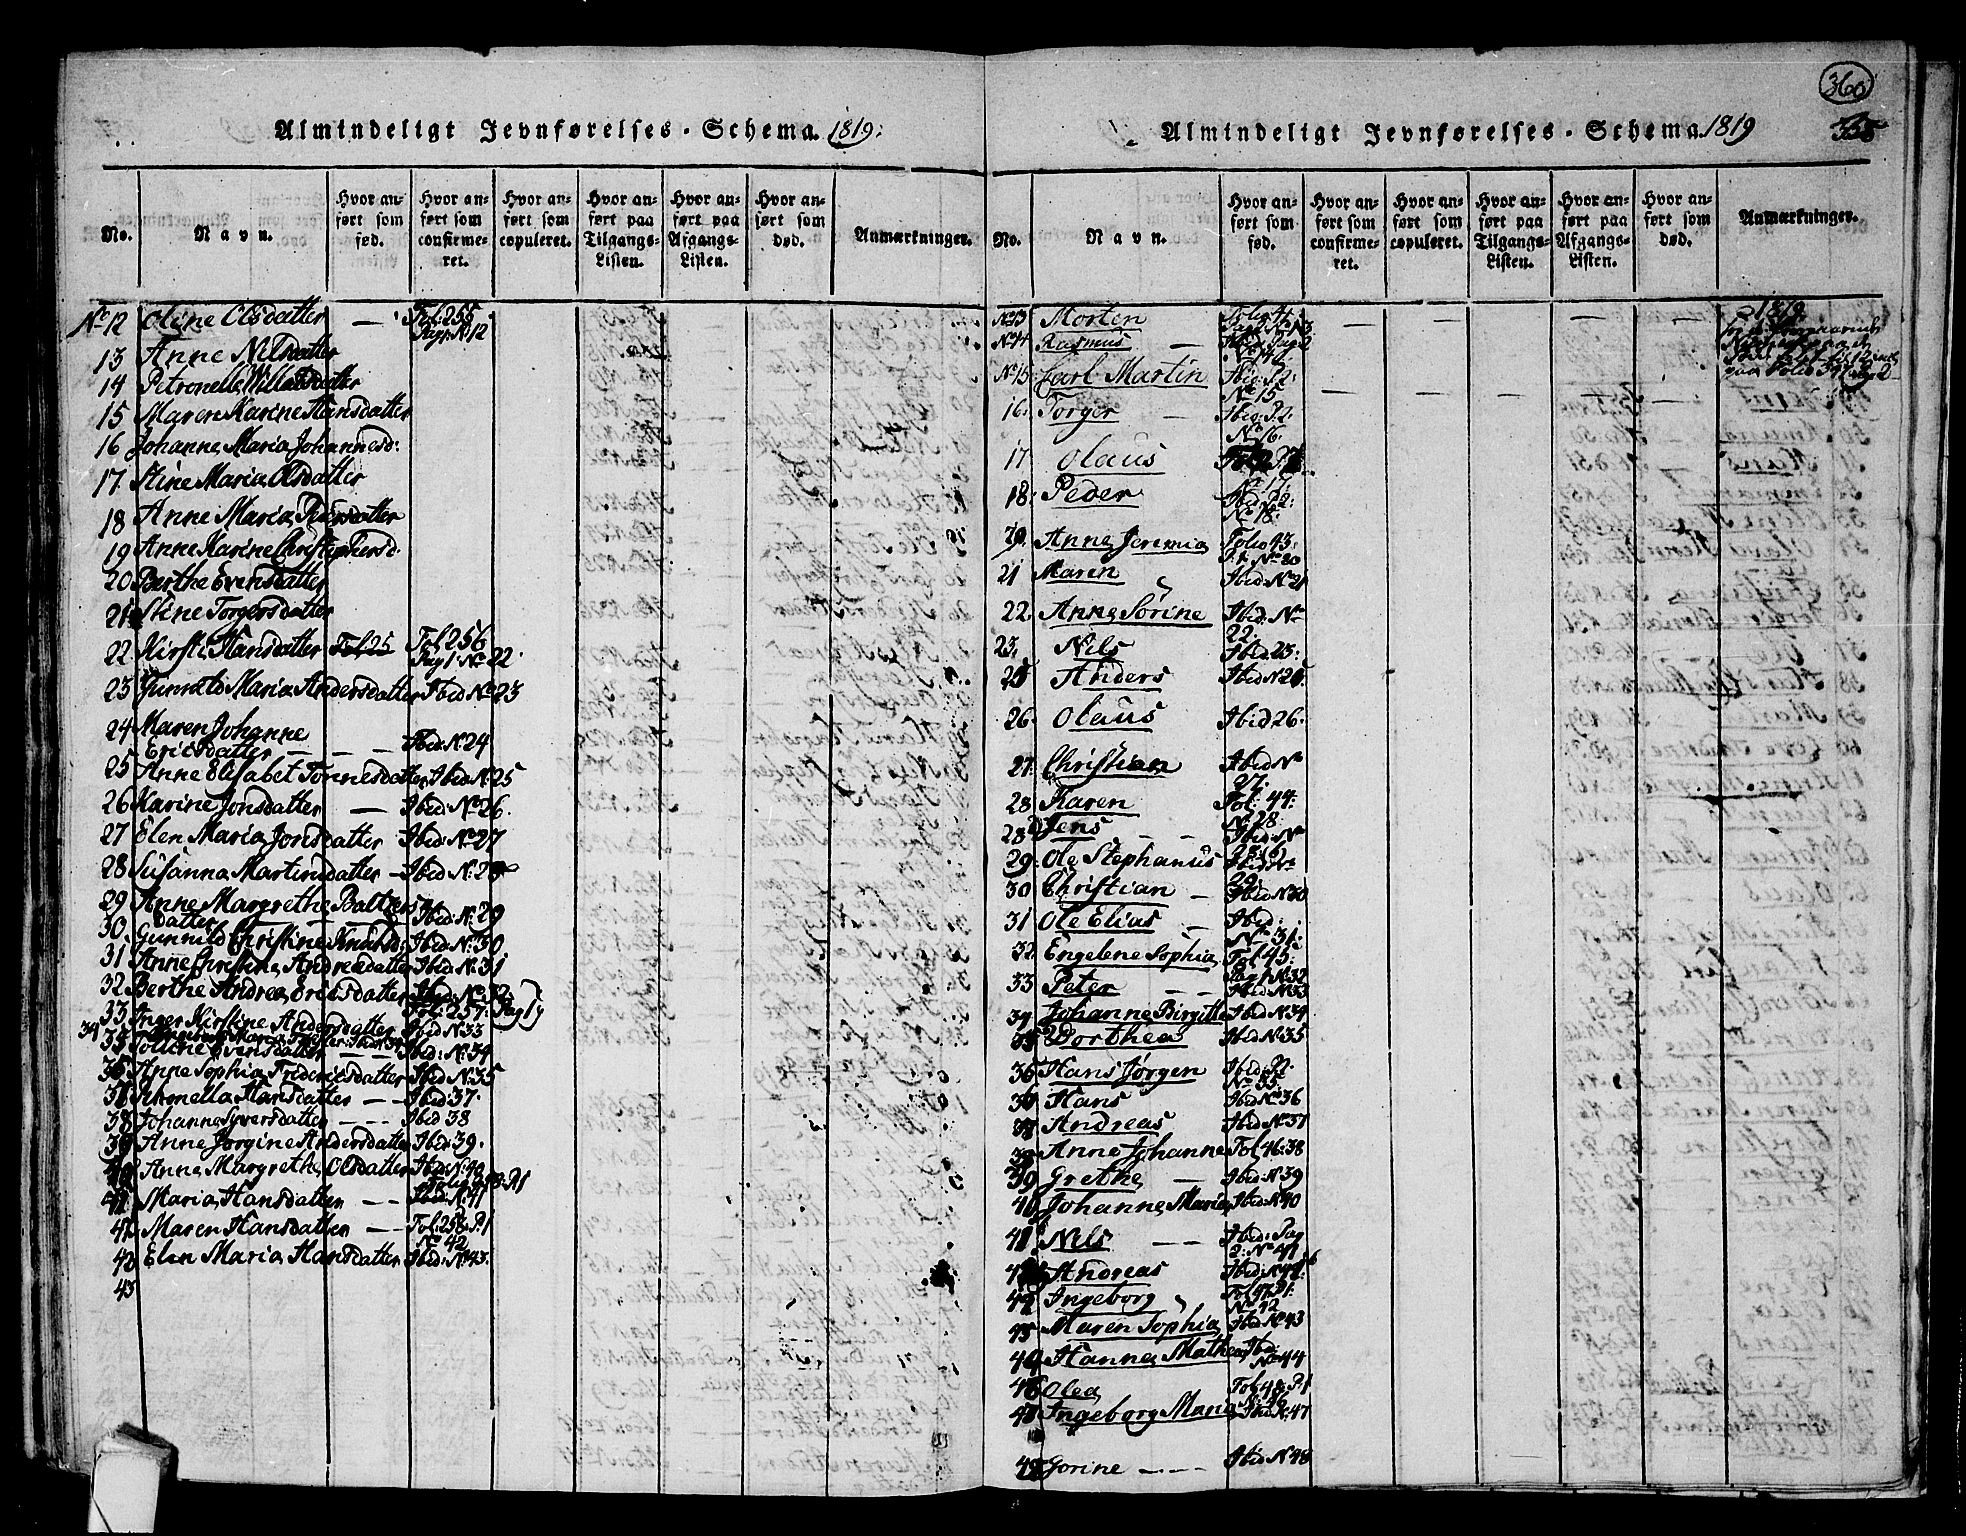 360
Almindeligt Jevnførelses-Schema 1819.
No.
Navn.
Hvor anført som fød.
Hvor anført som confirmeret.
Hvor anført som copuleret.
Hvor anført paa Tilgangs-Listen.
Hvor anført paa Afgangs-Listen.
Hvor anført som død.
Anmærkninger.
No 12 Oline Olsdatter — Fol: 255 Pag 1. No 12
13 Anne Nilsdatter
14 Petronelle
15 Maren Karine Hansdatter
16 Johanne Maria Johannesd:
17 Stine Maria Olsdatter
18 Anne Maria Pedersdatter
19 Anne Karine Christophersd:
20 Berthe Evensdatter
21 Stine Torgersdatter
22 Kirsti Hansdatter Fol 25 Fol 256 Pag 1: No 22.
23 Maria Andersdatter Ibid No 23
24 Maren Johanne
Ericsdatter — — — Ibid: No 24
25 Anne Elisabet Tonnesdatter Ibid: No 25
26 Karine Jonsdatter — Ibid: No 26.
27 Elen Maria Jonsdatter Ibid: No 27
28 Susanna Martinsdatter — Ibid: No 28
29 Anne Margrethe
datter — — Ibid: No 29
30 Gunnild Christine Ibid: No 30
31 Anne Christine Andreasdatter Ibid: No 31
32 Berthe Andrea Ericsdatter Ibid: No 32.
Fol: 257: Pag 1
33 Inger Kirstine Andersdatter Ibid No 33
34
35 Evensdatter — — Ibid: No 34
36 Anne Sophia Fredericsdatter Ibid No 35
37 Simonella Hansdatter — — Ibid: 37.
38 Johanne Syversdatter — — Ibid 38
39 Anne Jorgine Andersdatter Ibid: 39.
40 Anne Margrethe Olsdatter Ibid: No 40
41 Maria Hansdatter — — Ibid: No 41
41 Maren Hansdatter — — Fol: 258: P. 1 No 42
42 Elen Maria Hansdatter Ibid: No 43.
43
Almindeligt Jevnførelses-Schema 1819
355
No.
Navn.
Hvor anført som fød.
Hvor anført som confirmeret.
Hvor anført som copuleret.
Hvor anført paa Tilgangs-Listen.
Hvor anført paa Afgangs-Listen.
Hvor anført som død.
Anmærkninger.
No 13 Morten Folio 41. No 13 — — — — — 1819
No 14 Rasmus — Ibid: Pag 2 No 14
No 15 Carl Martin Ibid: P 2: No 15
16. Torger — Ibid: P 2: No 16.
17 Olaus No 17.
18. Peder Ibid: P 2: No 18.
Anne Jeremia Folio 43. P. 1. No 20
21 Maren Ibid: No 21
22. Anne Sorine Ibid: No 22.
23. Nils Ibid: 23:
25 Anders Ibid: No 25.
26. Olaus Ibid 26.
27. Christian Ibid: No 27.
28 Karen Fol: 44: No 28
28 Jens — — Ibid: No 28 (b)
29. Ole Stephanus Ibid: No 29.
30 Christian — Ibid No 30
31 Ole Elias — Ibid: No 31:
32. Engelene Sophia Fol 45: Pag 1: No 32
33 Peter — — Ibid: No 33
34 Johanne Birgitte Ibid No 34
35 Dorthea Ibid: No 35
36 Hans Jørgen Ibid: P 2. No 35.
Hans Ibid: No 36
Andreas Ibid: No 37
38 Anne Johanne Fol 46: 38
39 Grethe — Ibid: No 39
40 Johanne Maria Ibid: No 40
41 Nils — — Ibid: Pag 2: No 41
Andreas Ibid: No 41
42 Ingeborg Fol 47. P 1: No 42
43 Maren Sophia Ibid: No 43
Hanne Mathea Ibid: No 44
46 Olea Fol 48: P. 1
48 Ingeborg Maria Ibid: No 47
49 Gorine — — — Ibid: No 48